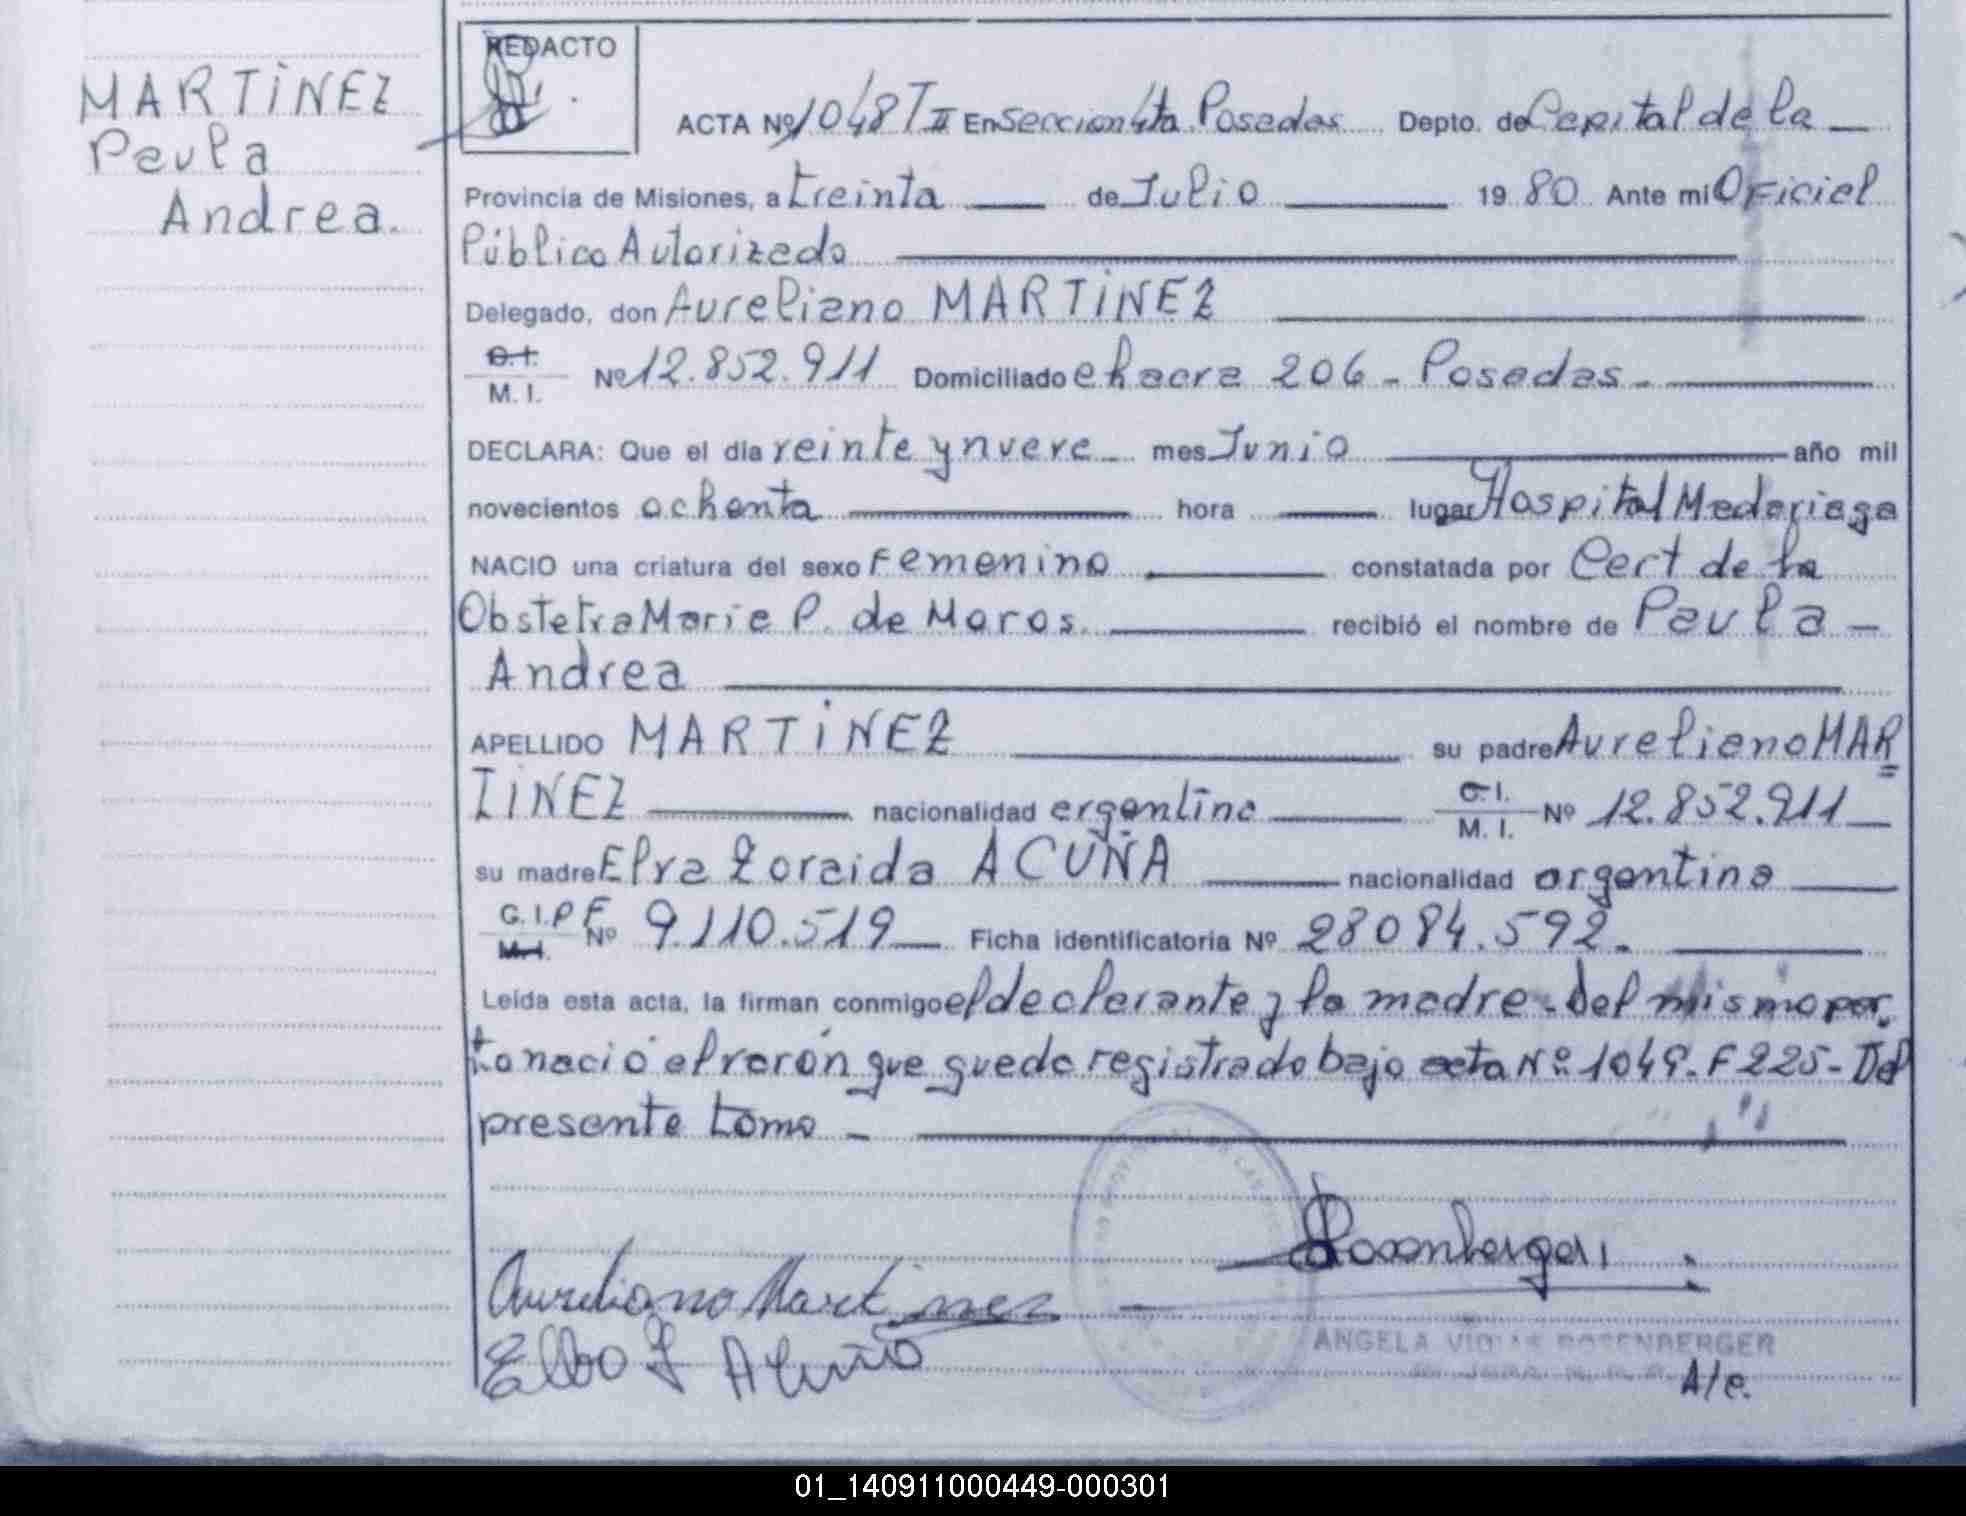 MARTINEZ
Paula
Andrea.
REDACTO
ACTA Nº 1048 T II En Seccion 4ta. Posadas Depto. de Capital de la
Provincia de Misiones, a treinta de Julio 19 80 Ante mi Oficial
Público Autorizado
Delegado, don Aureliano MARTINEZ
C.I.
M. I. Nº 12.852.911 Domiciliado chacra 206 - Posadas.
DECLARA: Que el día veinte y nueve mes Junio año mil
novecientos ochenta hora lugar Hospital Madariaga
NACIO una criatura del sexo Femenino constatada por Cert de la
Obstetra Maria P. de Moros. recibió el nombre de Paula
Andrea
APELLIDO MARTINEZ su padre Aureliano MAR=
TINEZ nacionalidad argentina C.I.
M. I. Nº 12.852.911
su madre Elva Zoraida ACUÑA nacionalidad argentina
C.I.P F
M.I. Nº 9.110.519 Ficha identificatoria Nº 28084.592.
Leída esta acta, la firman conmigo el declarante y la madre - Del mismo par
to nació el varón que quedo registrado bajo acta Nº 1049. F 225 - Del
presente tomo
Rosenberger
Aureliano Martinez
Elba Z Acuña
ANGELA ROSENBERGER
A/c.
01_140911000449-000301